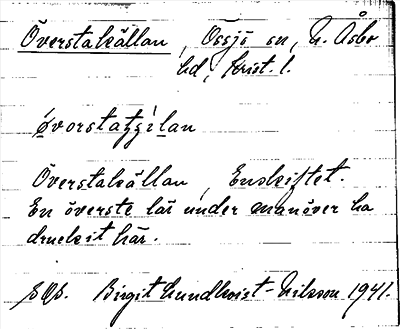 Överstakällan, Össjö sn, N. Åsbo
hd, Krist. l.
Överstakällan, Enskiftet.
En överste lär under manöver ha
druckit här.
Birgit Lundkvist-Nilsson 1941.